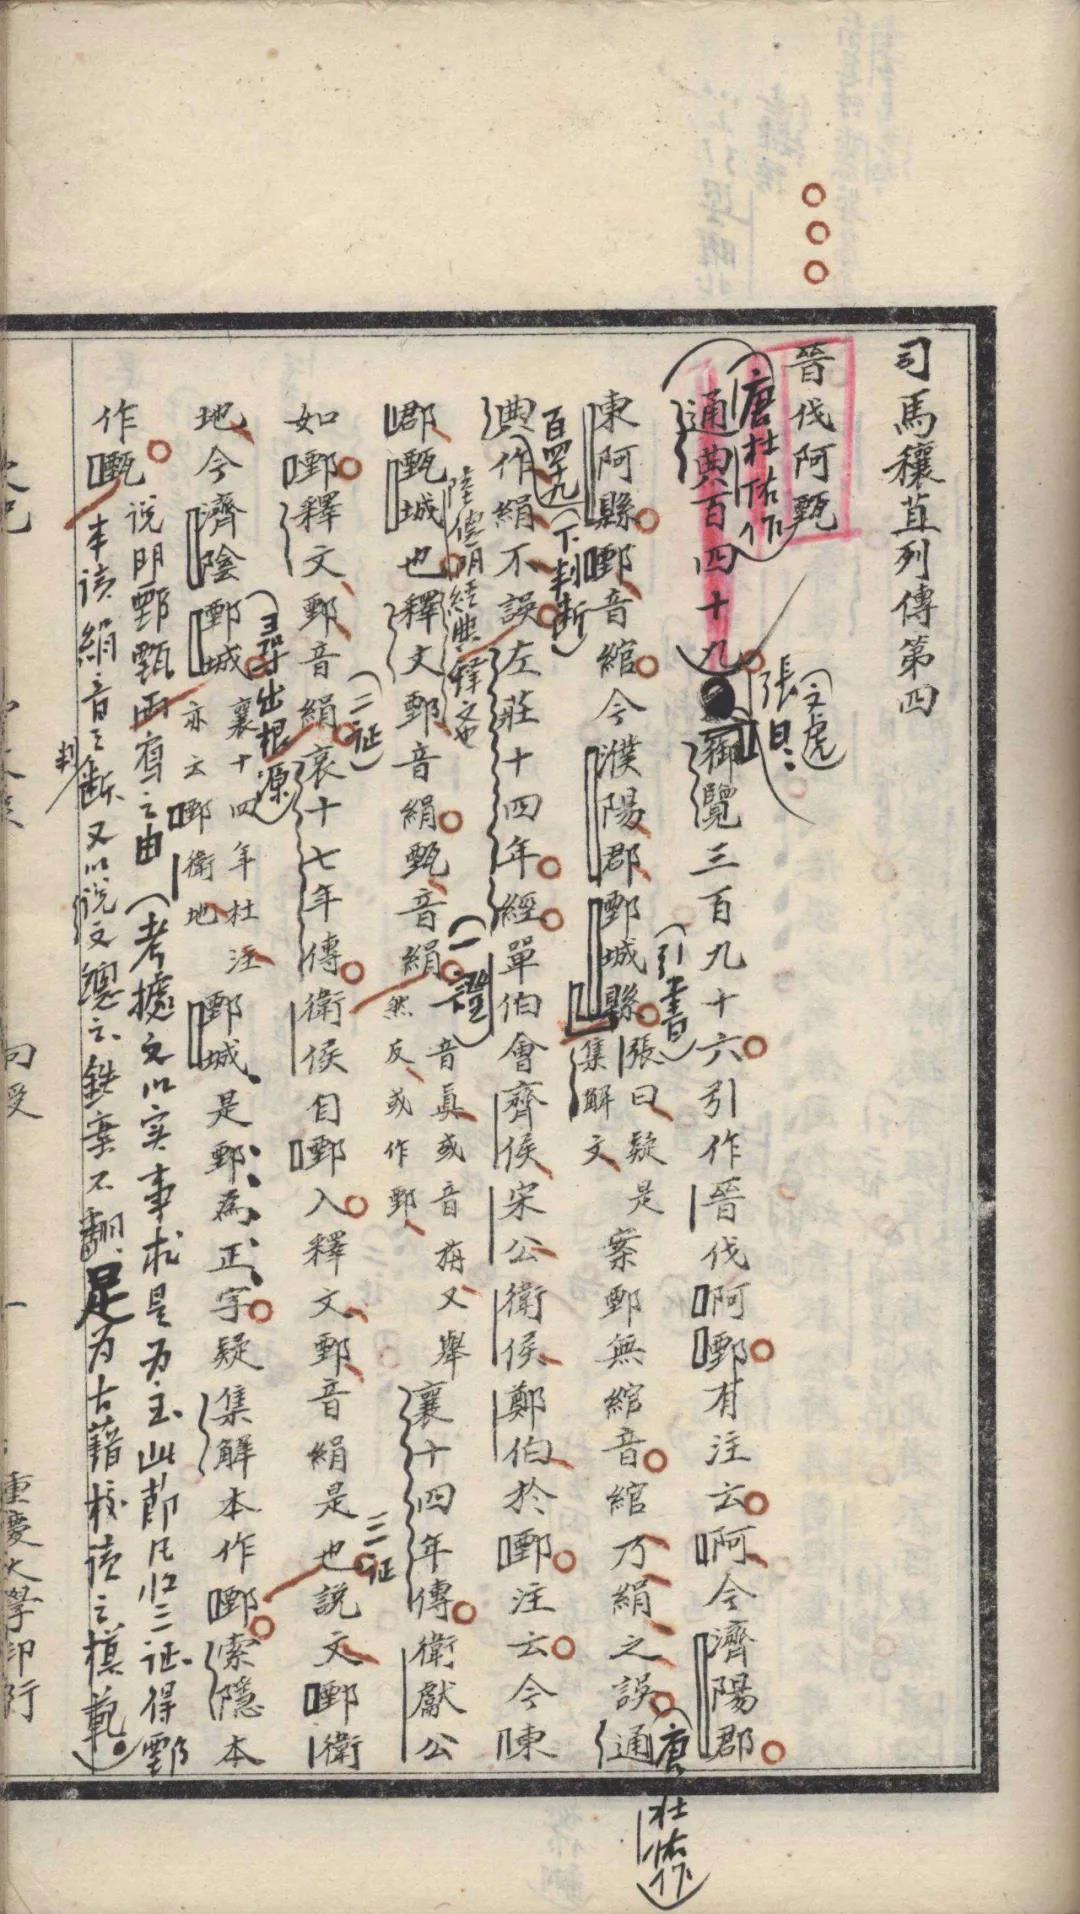 司馬穰苴列傳第四
晉伐阿甄
張文虎曰
唐杜佑作
通典百四十九御覽三百九十六引作晉伐阿鄄有注云阿今濟陽郡
東阿縣鄄音綰今濮陽郡鄄城縣張曰疑是集解文案鄄無綰音綰乃絹之誤通
引書
唐杜佑作
百四十九
下判斷
典作絹不誤左莊十四年經單伯會齊侯宋公衛侯鄭伯於鄄注云今東
陸德明經典釋文也
一證
郡甄城也釋文鄄音絹甄音絹音真或音旃又舉然反或作鄄襄十四年傳衛獻公
二证
三证
如鄄釋文鄄音絹哀十七年傳衛侯自鄄入釋文鄄音絹是也說文鄄衛
寻出根源
地今濟陰鄄城襄十四年杜注亦云鄄衛地鄄城是鄄為正字疑集解本作鄄索隱本
作甄
说明鄄甄两寫之由(考據文以实事求是为主此節凡归三证得鄄
本读絹音之判斷又以说文總之鉄案不翻足为古籍校读之模範)
史記
向受
一
重慶大學印行